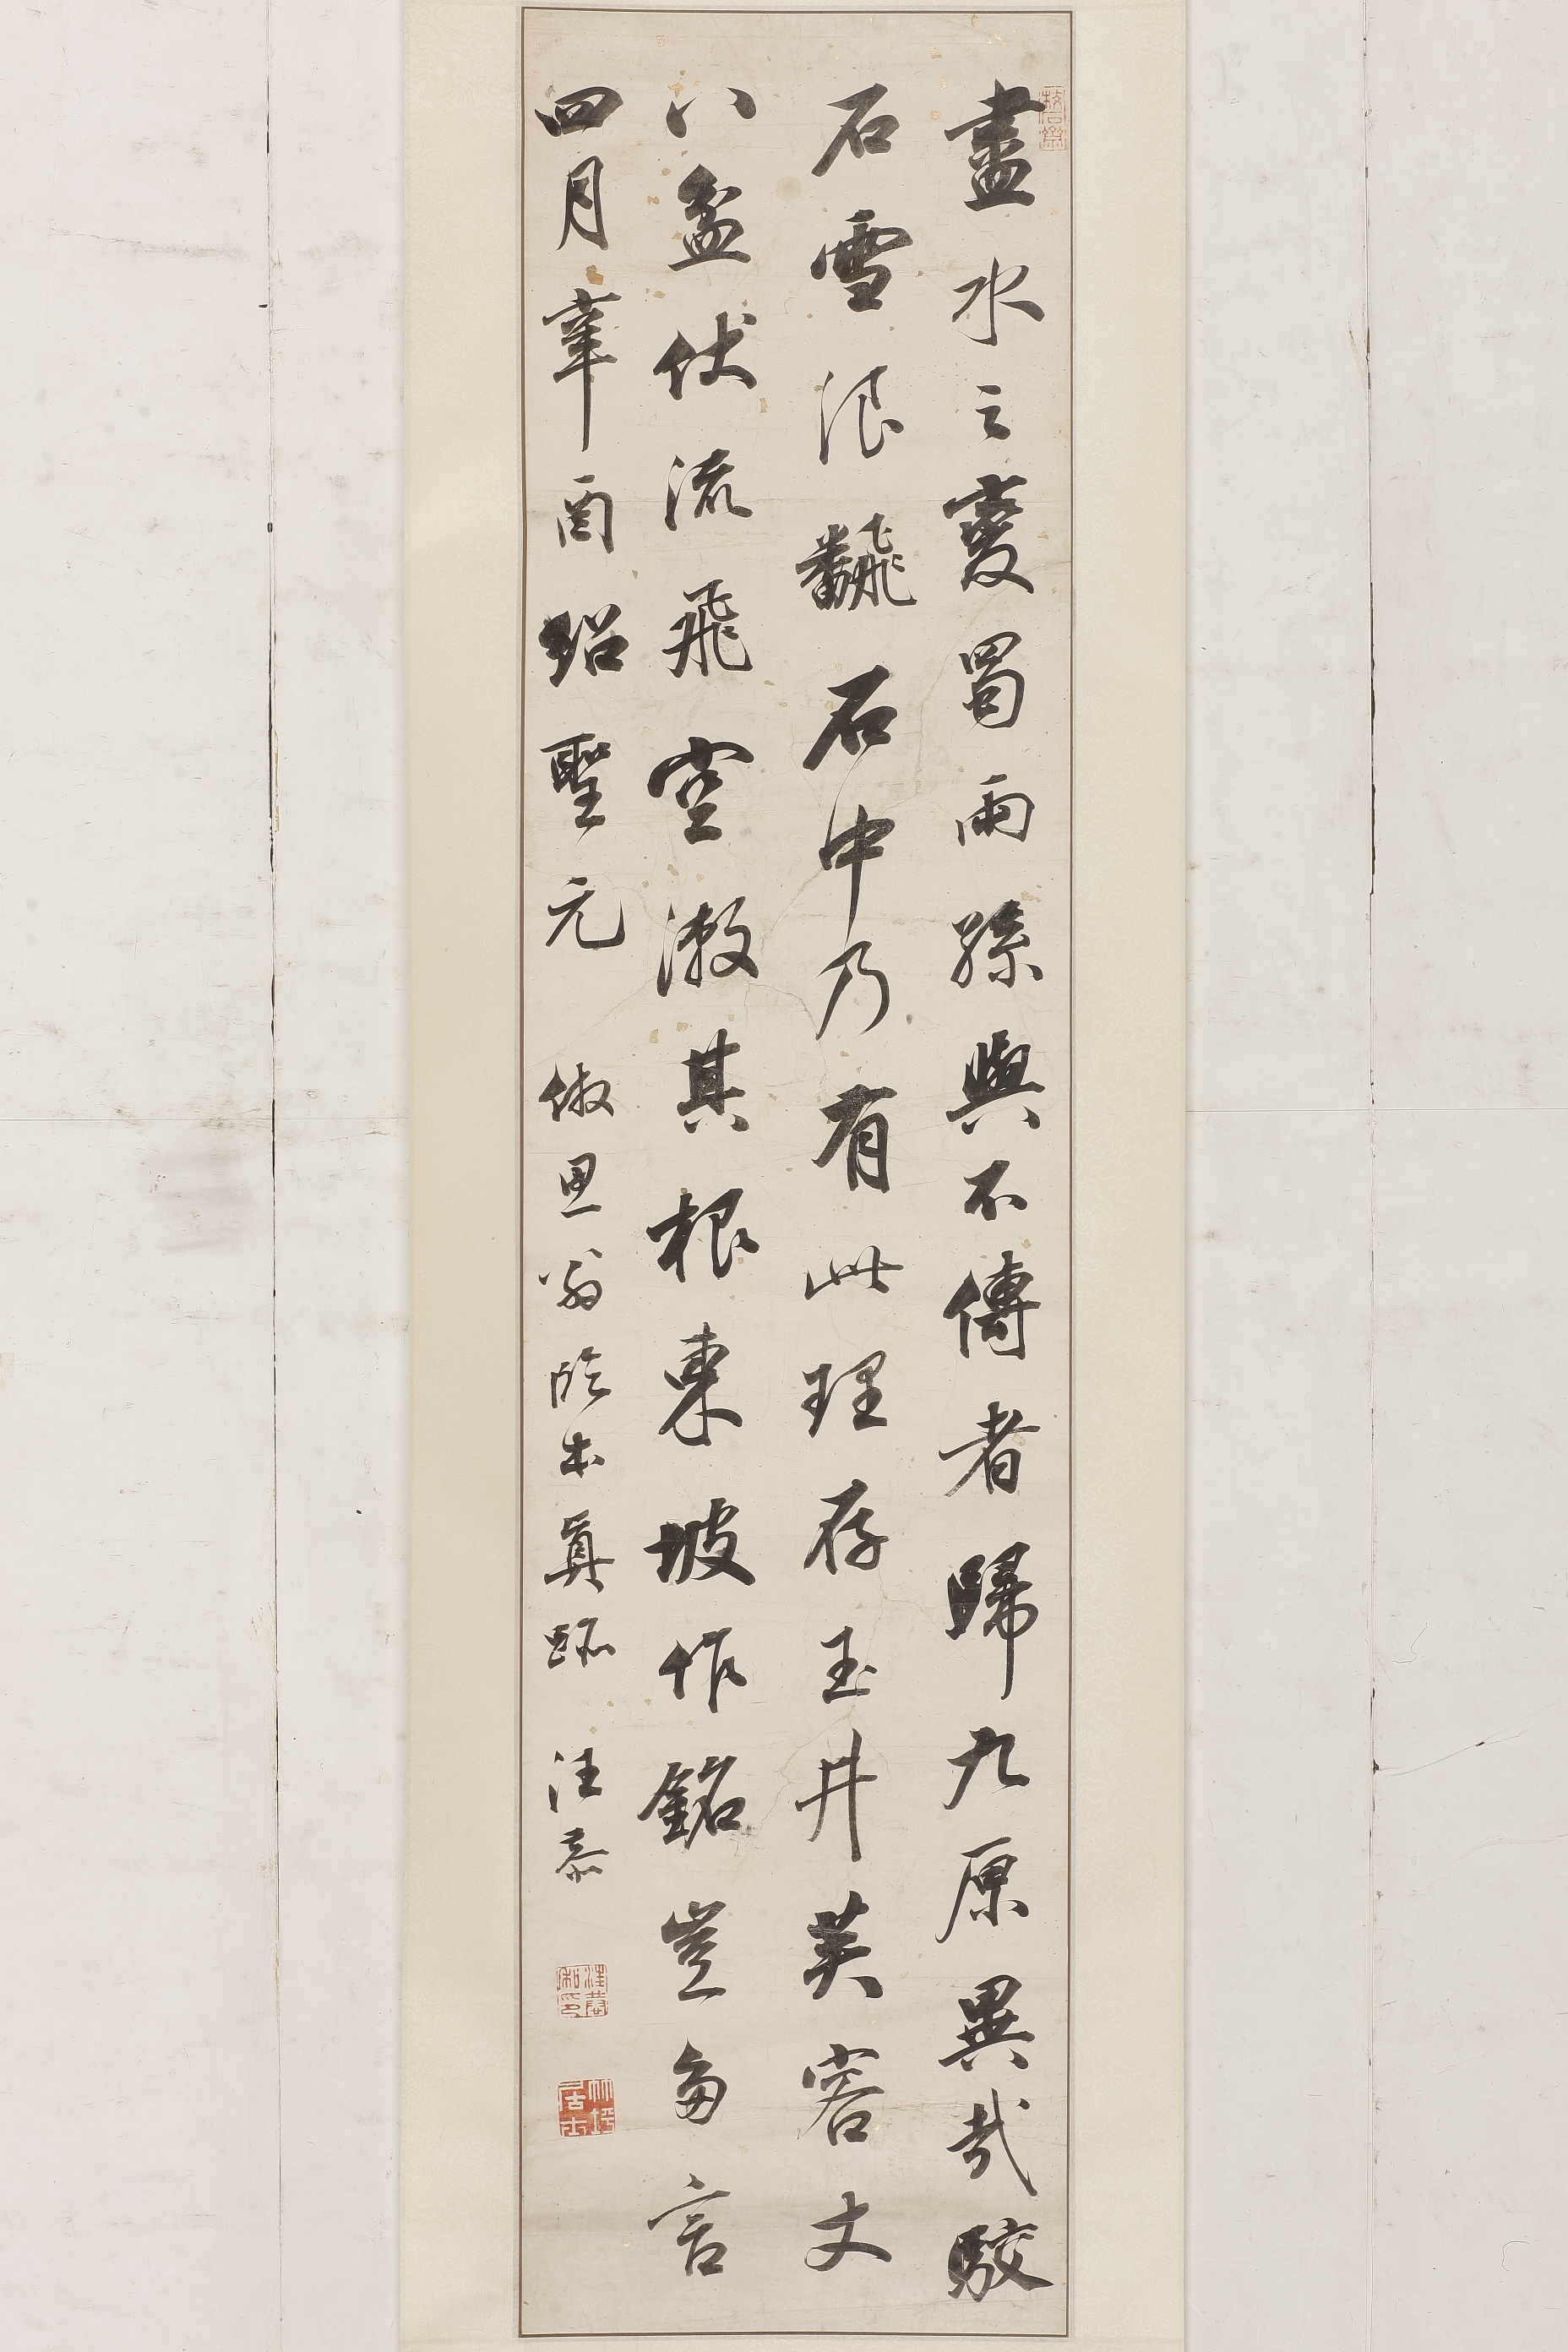 盡水之變蜀兩孫與不傳者歸九原異哉駮
石雪浪飜石中乃有此理存玉井芙蓉丈
八盆伏流飛空漱其根東坡作銘豈多言
四月辛酉紹聖元 倣思翁臨本真跡 汪慕
竹坪居士